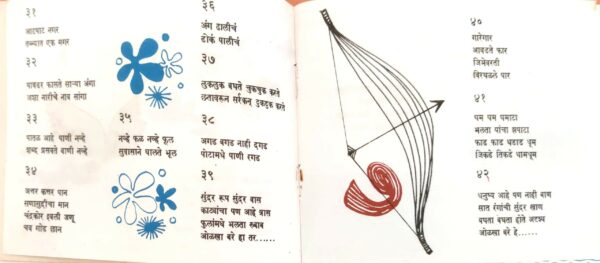 ३१
आटपाट नगर
तळ्यात एक मगर
३२
पावडर फासते साऱ्या अंगा
अशा नारीचे नाव सांगा
३३
पातळ आहे पाणी नव्हे
शब्द प्रसवते वाणी नव्हे
३४
जत्तर कत्तर पान
सणासुदीचा मान
चंद्रकोर इवली जणू
चव गोड छान
३५
नव्हे फळ नव्हे फूल
सुवासाने घालते भूल
३६
अंग ढालीचं
डोकं पालीचं
३७
लुकलुक बघते चुकचुक करते
छतावरून सरकन् टुकटुक करते
३८
अगड बगड नाही दगड
पोटामधे पाणी रगड
३९
सुंदर रूप सुंदर वास
काट्यांचा पण आहे त्रास
फुलांमधे भलता रुबाब
ओळखा बरे हा तर......
४०
गारेगार
आवडते फार
जिभेवरती
विरघळते पार
४१
घम घम घमाटा
भलता यांचा झपाटा
फाड फाड धडाड धूम
जिकडे तिकडे धामधूम
४२
धनुष्य आहे पण नाही बाण
सात रंगांची सुंदर खाण
बघता बघता होते अदृश्य
ओळखा बरे हे......